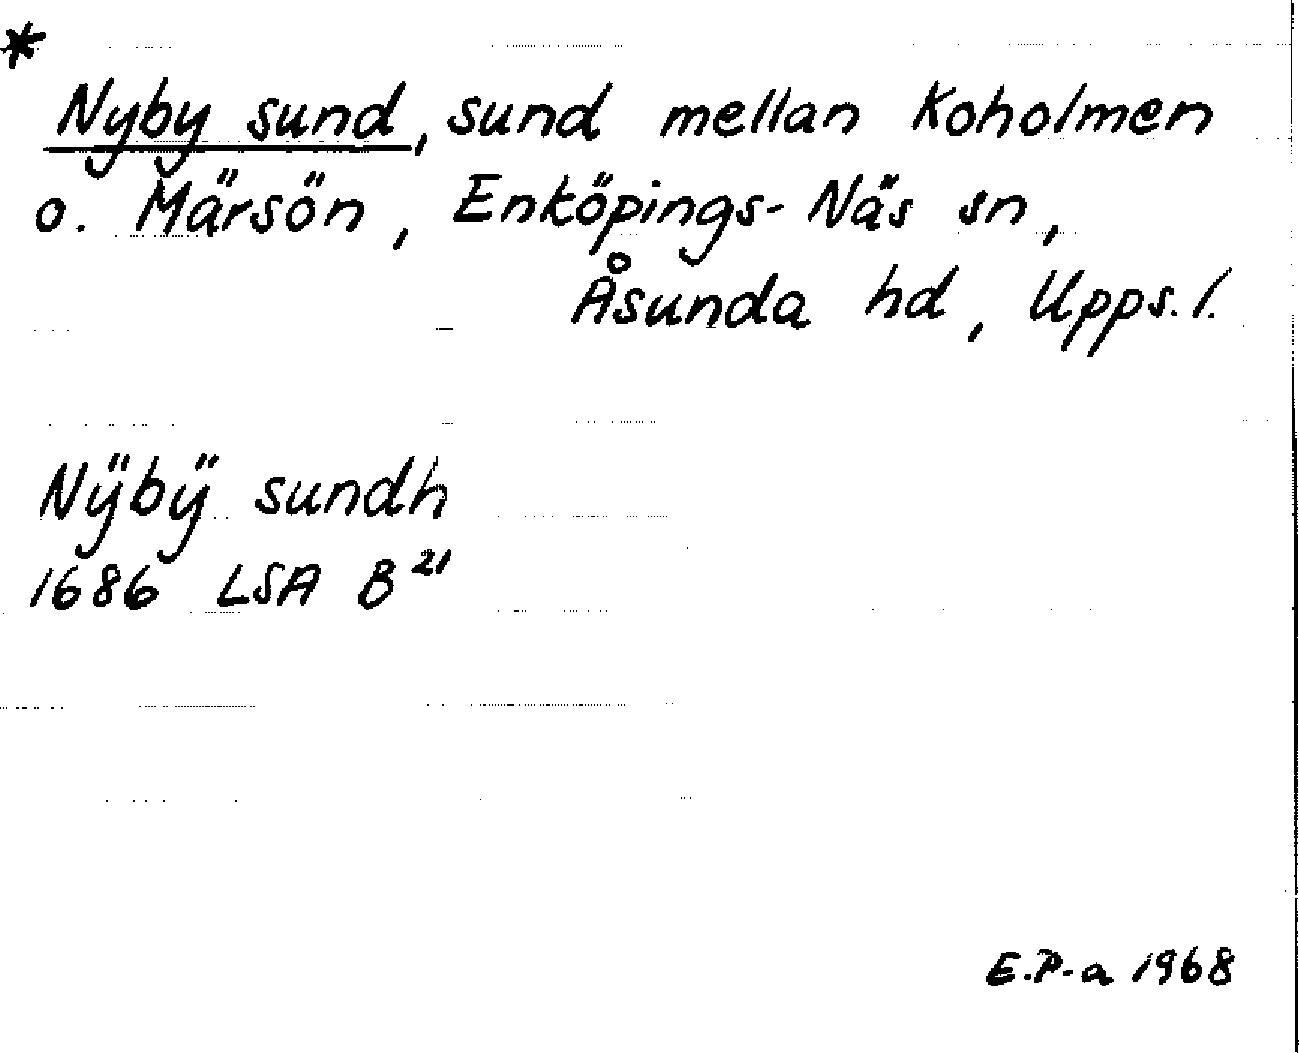 *
Nyby sund, sund mellan Koholmen
o. Märsön, Enköpings-Näs sn,
Åsunda hd, Upps. l.
Nÿbÿ sundh
1686 LSA B²¹
E.P-a 1968